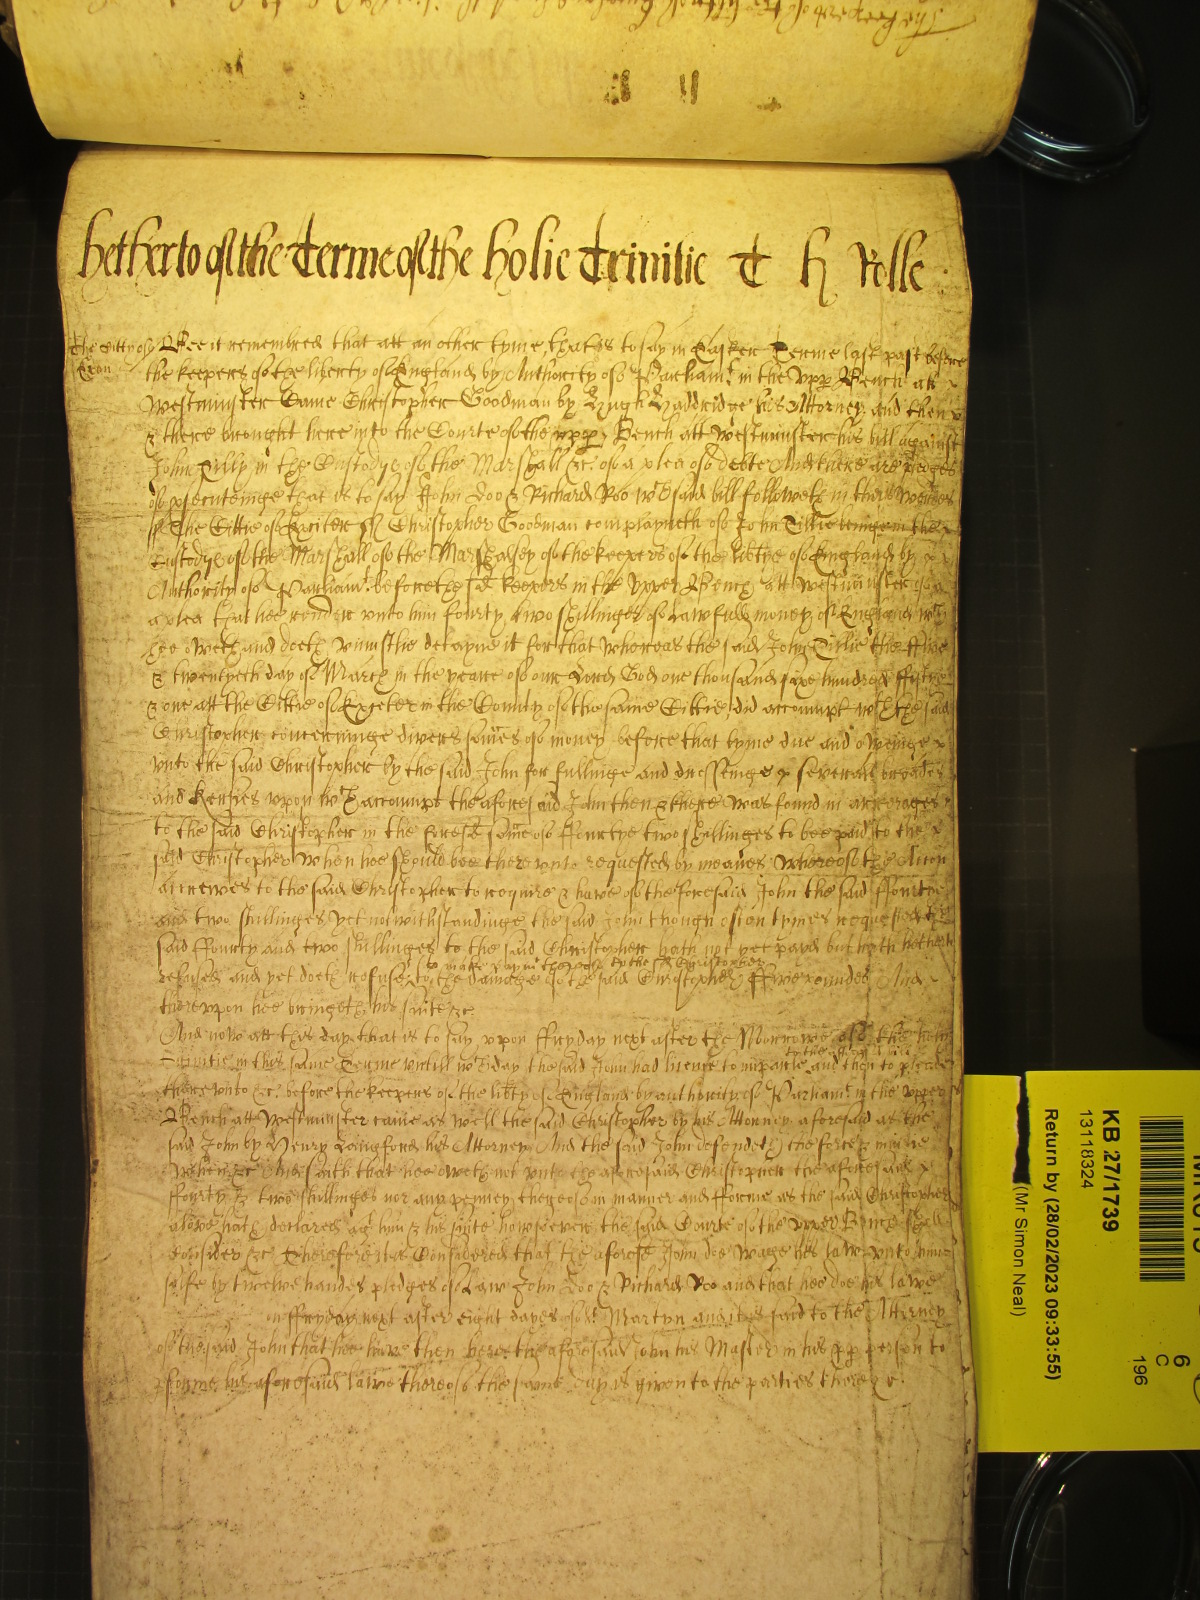 hetherto of the Terme of the holie Trinitie T h Rolle
The Citty of Exon
Bee it remembred that att an other tyme, that is to say in Easter Terme last past before
the keepers of the liberty of England by Authority of Parliamt. in the vpp Bench att
Westminster Came Christopher Goodman by Hugh his Attorney and then
& there brought here into the Courte of the vpp Bench att Westminster his bill against
John Tilly in the Custodye of the Marshall &c. of a plea of debte And there are pledges
of psecuteinge that is to say John Doo & Richard Roo wch said bill followeth in theis wordes
ss The Cittie of Exciter ss Christopher Goodman complayneth of John Tillie beinge in the
Custodye of the Marshall of the Marshalsey of the keepers of the libtye of England by
Authority of Parliamt. before the sd keepers in the vpper Bench att Westminster of
a plea that hee render vnto him fourty two shillinges of Lawfull money of England wch
hee oweth and doeth vniustlie detayne it for that whereas the said John Tillie the ffive
& twentyeth day of March in the yeare of our Lord God one thousand sixe hundred ffiftye
& one att the Cittie of Exceter in the County of the same Cittie, did accompt wth the said
Christopher concerninge divers somes of money before that tyme due and oweinge
vnto the said Christopher by the said John for fullinge and dressinge severall
and Kersies vpon wch accompt the aforesaid John then & there was found in arrerages
to the said Christopher in the foresd some of ffourtye two shillinges to bee paid to the
said Christopher when hee should bee therevnto requested by meanes whereof the Accon
accrewes to the said Christopher to require & have of the foresaid John the said ffourtie
and two shillinges yet notwithstandinge the said John though often tymes requested the
said ffourty and two shillinges to the said Christopher hath not yet payd but hath hetherto
to make to the sd Christopher
refused and yet doeth refuse to the damage of the said Christopher ffive poundes And
therevpon hee bringeth his suite &c
And now att this day that is to say vpon ffryday next after the Morrowe of the holy
Trinitie in this same Terme vntill wch day the said John had licence to imparle and then to pleade
therevnto &c. before the keepers of the libty of England by authority of Parliamt. in the vpper
Bench att Westminster came as well the said Christopher by his Attorney aforesaid as the
said John by Henry Langford his Attorney And the said John defendeth the force & iniurie
when &c And saith that hee oweth not vnto the aforesaid Christopher the aforesaid
ffourty & two shillinges nor any penney thereof in manner and fforme as the said Christopher
above hath declared agt him & his suite howsoever the said Courte of the vpper Bench shall
consider &c Therefore it is Considered that the aforesd John doe wage his law vnto him
selfe by twelve handes pledges of Law John Doo & Richard Roo and that hee doe his lawe
on ffryday next after eight dayes of St. Martyn and it is said to the Atterney
of the said John that hee have then here the aforesaid John his Master in his pp person to
pforme his aforesaid lawe thereof the same day is given to the parties there &c.
KB 27/1739
13118324
Return by (28/02/2023 09:33:55)
(Mr Simon Neal)
6
C
196